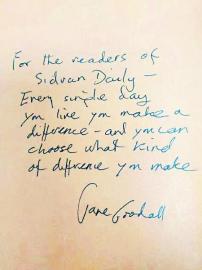 For the readers of
Sidvan Daily —
Every single day
you live you make a
difference - and you can
choose what kind
of difference you make
Jane Goodall